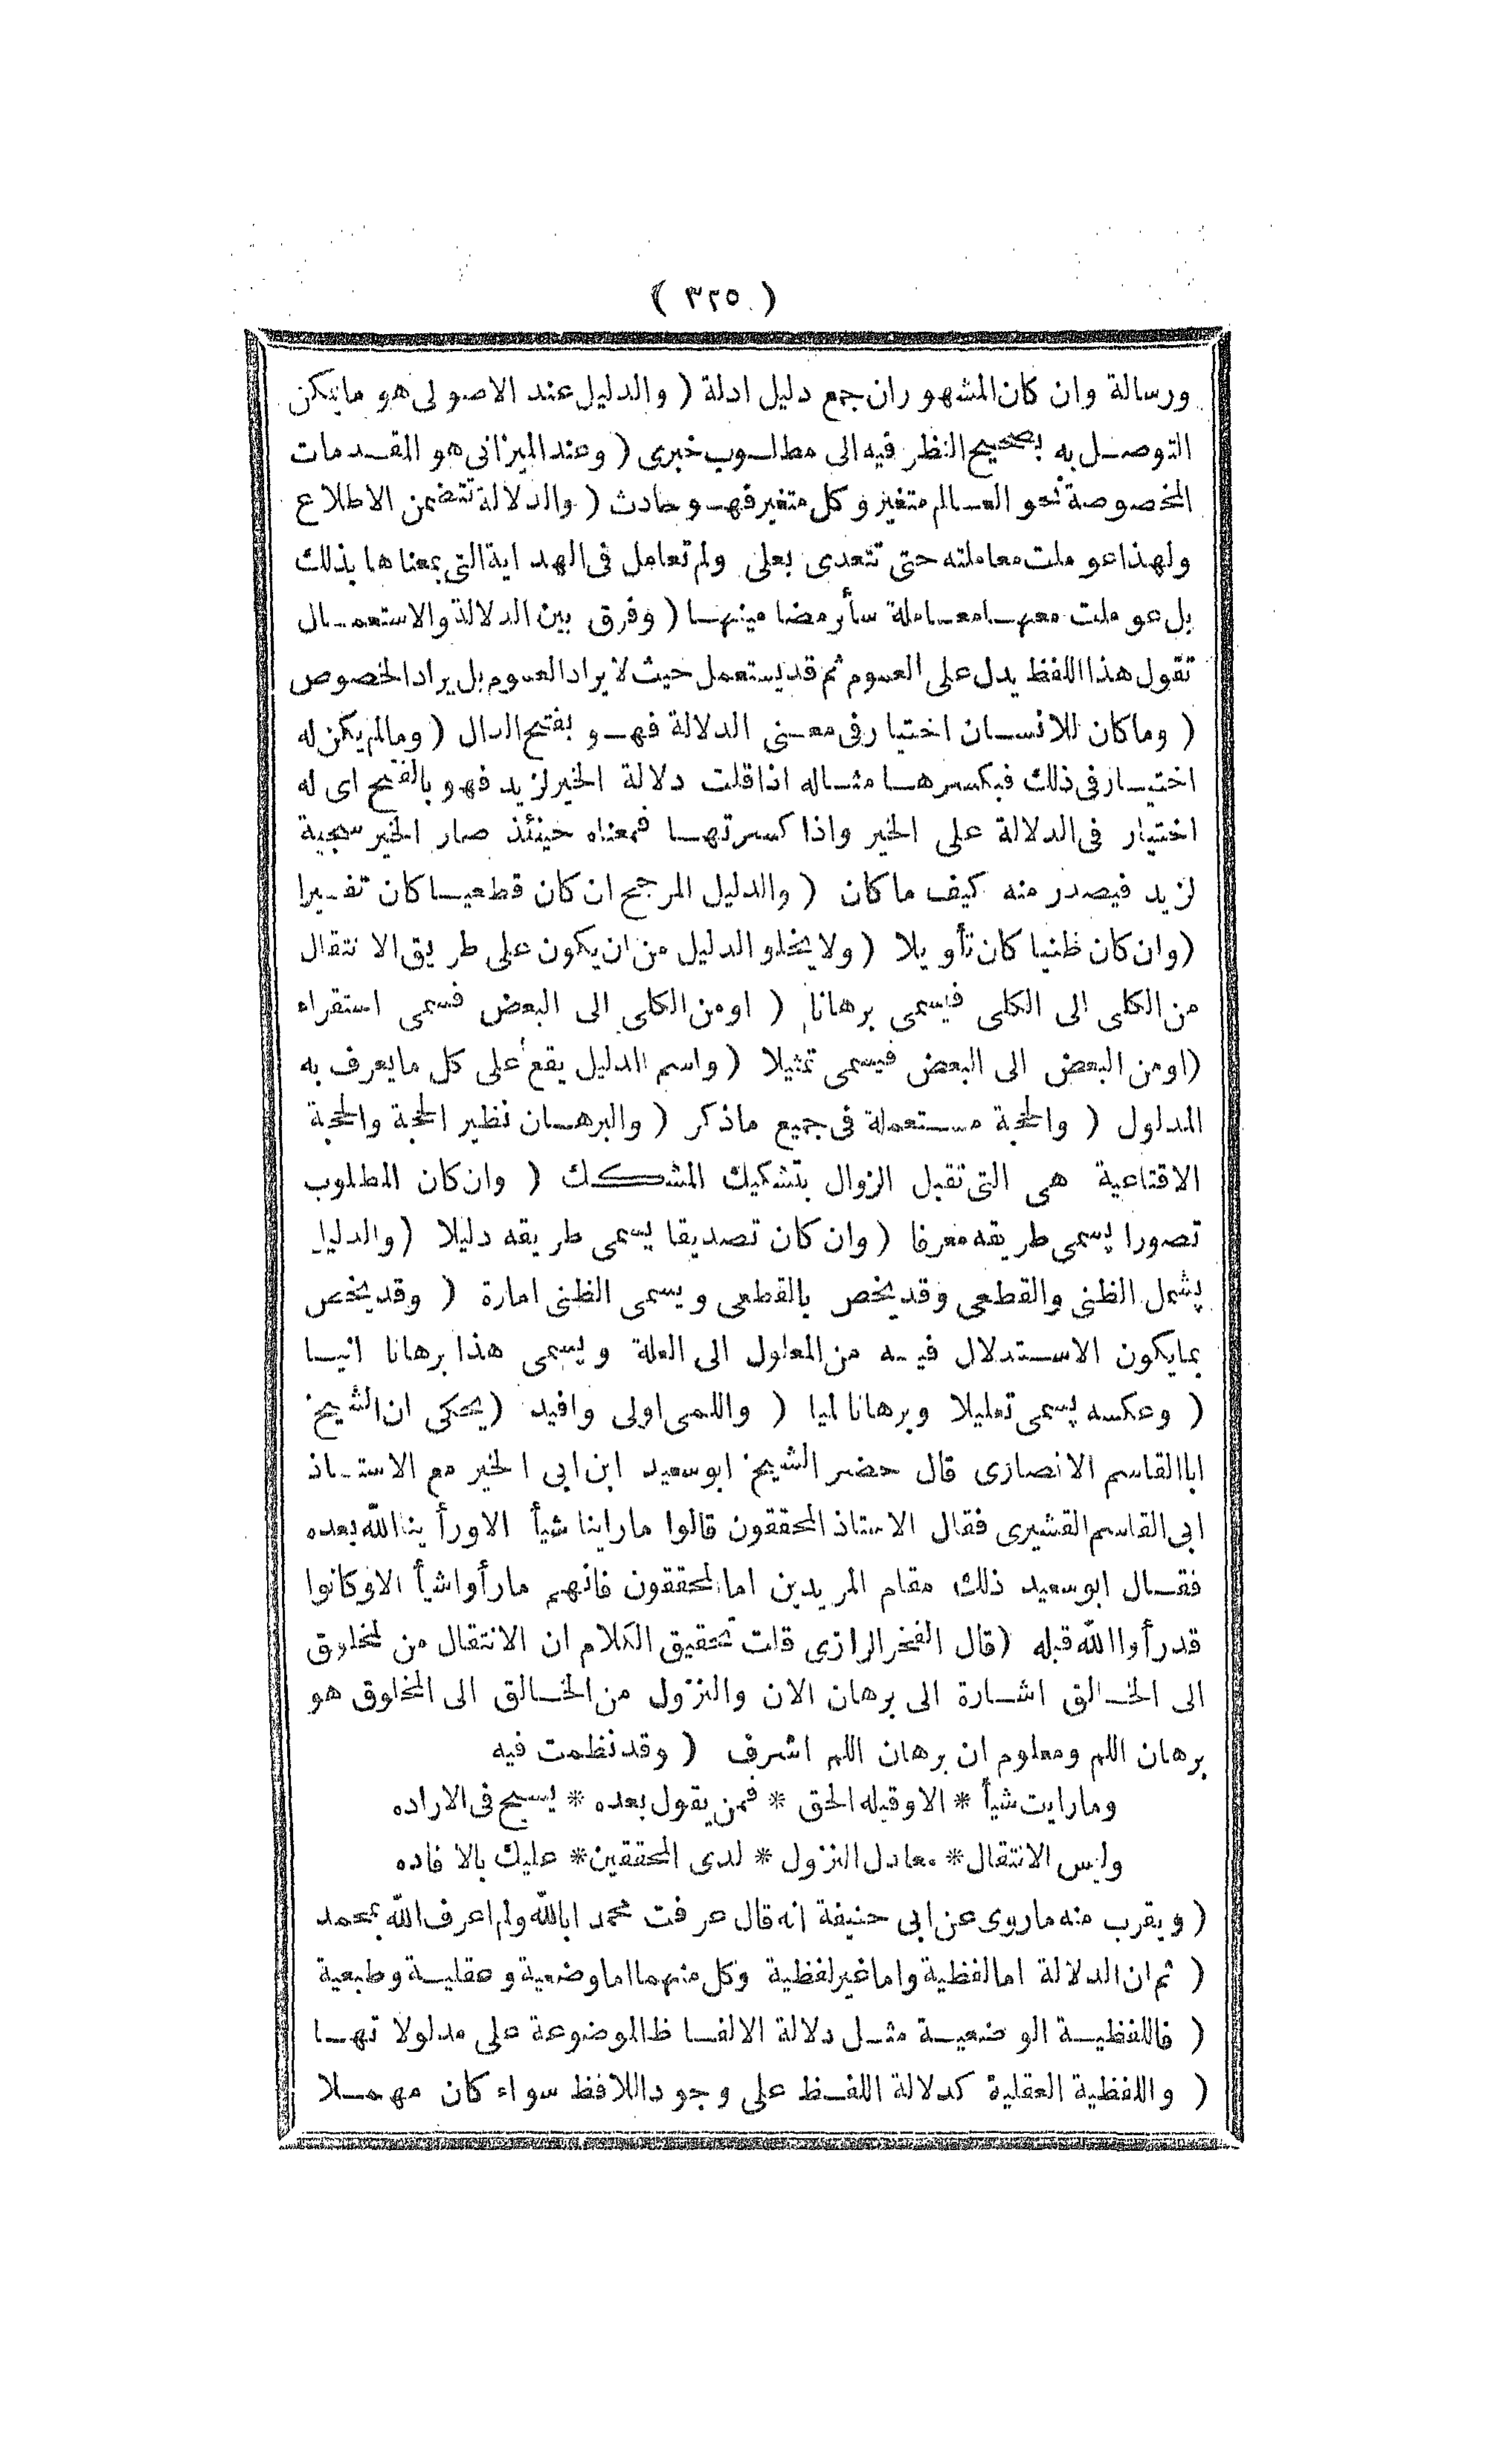 ( ٣٢٥ )
ورسالة وان كان المشهور ان جمع دليل ادلة ( والدليل عند الاصولى هو مايمكن
التوصل به بصحيح النظر فيه الى مطلوب خبرى ( وعند الميزانى هو المقدمات
المخصوصة نحو العالم متغير وكل متغير فهو حادث ( والدلالة تتضمن الاطلاع
ولهذا عوملت معاملته حتى تتعدى بعلى ولم تعامل فى الهداية التى بمعناها بذلك
بل عوملت معها معاملة سأر مضامينها ( وفرق بين الدلالة والاستعمال
تقول هذا اللفظ يدل على العموم ثم قد يستعمل حيث لا يراد العموم بل يراد الخصوص
( وما كان للانسان اختيار فى معنى الدلالة فهو بفتح الدال ( ومالم يكن له
اختيار فى ذلك فبكسرها مثاله اذا قلت دلالة الخير لزيد فهو بالفتح اى له
اختيار فى الدلالة على الخير واذا كسرتها فمعناه حينئذ صار الخير سجية
لزيد فيصدر منه كيف ما كان ( والدليل المرجح ان كان قطعيا كان تفسيرا
( وان كان ظنيا كان تأويلا ( ولا يخلو الدليل من ان يكون على طريق الانتقال
من الكلى الى الكلى فيسمى برهانا ( اومن الكلى الى البعض فسمى استقراء
( اومن البعض الى البعض فيسمى تمثيلا ( واسم الدليل يقع على كل مايعرف به
المدلول ( والحجة مستعملة فى جميع ماذكر ( والبرهان نظير الحجة والحجة
الاقناعية هى التى تقبل الزوال بتشكيك المشكك ( وان كان المطلوب
تصورا يسمى طريقه معرفا ( وان كان تصديقا يسمى طريقه دليلا ( والدليل
يشمل الظنى والقطعى وقد يخص بالقطعى ويسمى الظنى امارة ( وقد يخص
بمايكون الاستدلال فيه من المعلول الى العلة ويسمى هذا برهانا انيا
( وعكسه يسمى تعليلا وبرهانا لميا ( واللمى اولى وافيد ( يحكى ان الشيخ
ابا القاسم الانصارى قال حضر الشيخ ابو سعيد ابن ابى الخير مع الاستاذ
ابى القاسم القشيرى فقال الاستاذ المحققون قالوا ماراينا شيأ الا ورأينا الله بعده
فقال ابو سعيد ذلك مقام المريدين اما المحققون فانهم مارأوا شيأ الا وكانوا
قد رأوا الله قبله ( قال الفخر الرازى قلت تحقيق الكلام ان الانتقال من المخلوق
الى الخالق اشارة الى برهان الان والنزول من الخالق الى المخلوق هو
برهان اللم ومعلوم ان برهان اللم اشرف ( وقد نظمت فيه
ومارايت شيأ * الا وقبله الحق * فمن يقول بعده * يسبح فى الاراده
وليس الانتقال * معادل النزول * لدى المحققين * عليك بالافاده
( ويقرب منه ماروى عن ابى حنيفة انه قال عرفت محمدا بالله ولم اعرف الله بمحمد
( ثم ان الدلالة اما لفظية واما غير لفظية وكل منهما اما وضعية وعقلية وطبعية
( فاللفظية الوضعية مثل دلالة الالفاظ الموضوعة على مدلولاتها
( واللفظية العقلية كدلالة اللفظ على وجود اللافظ سواء كان مهملا